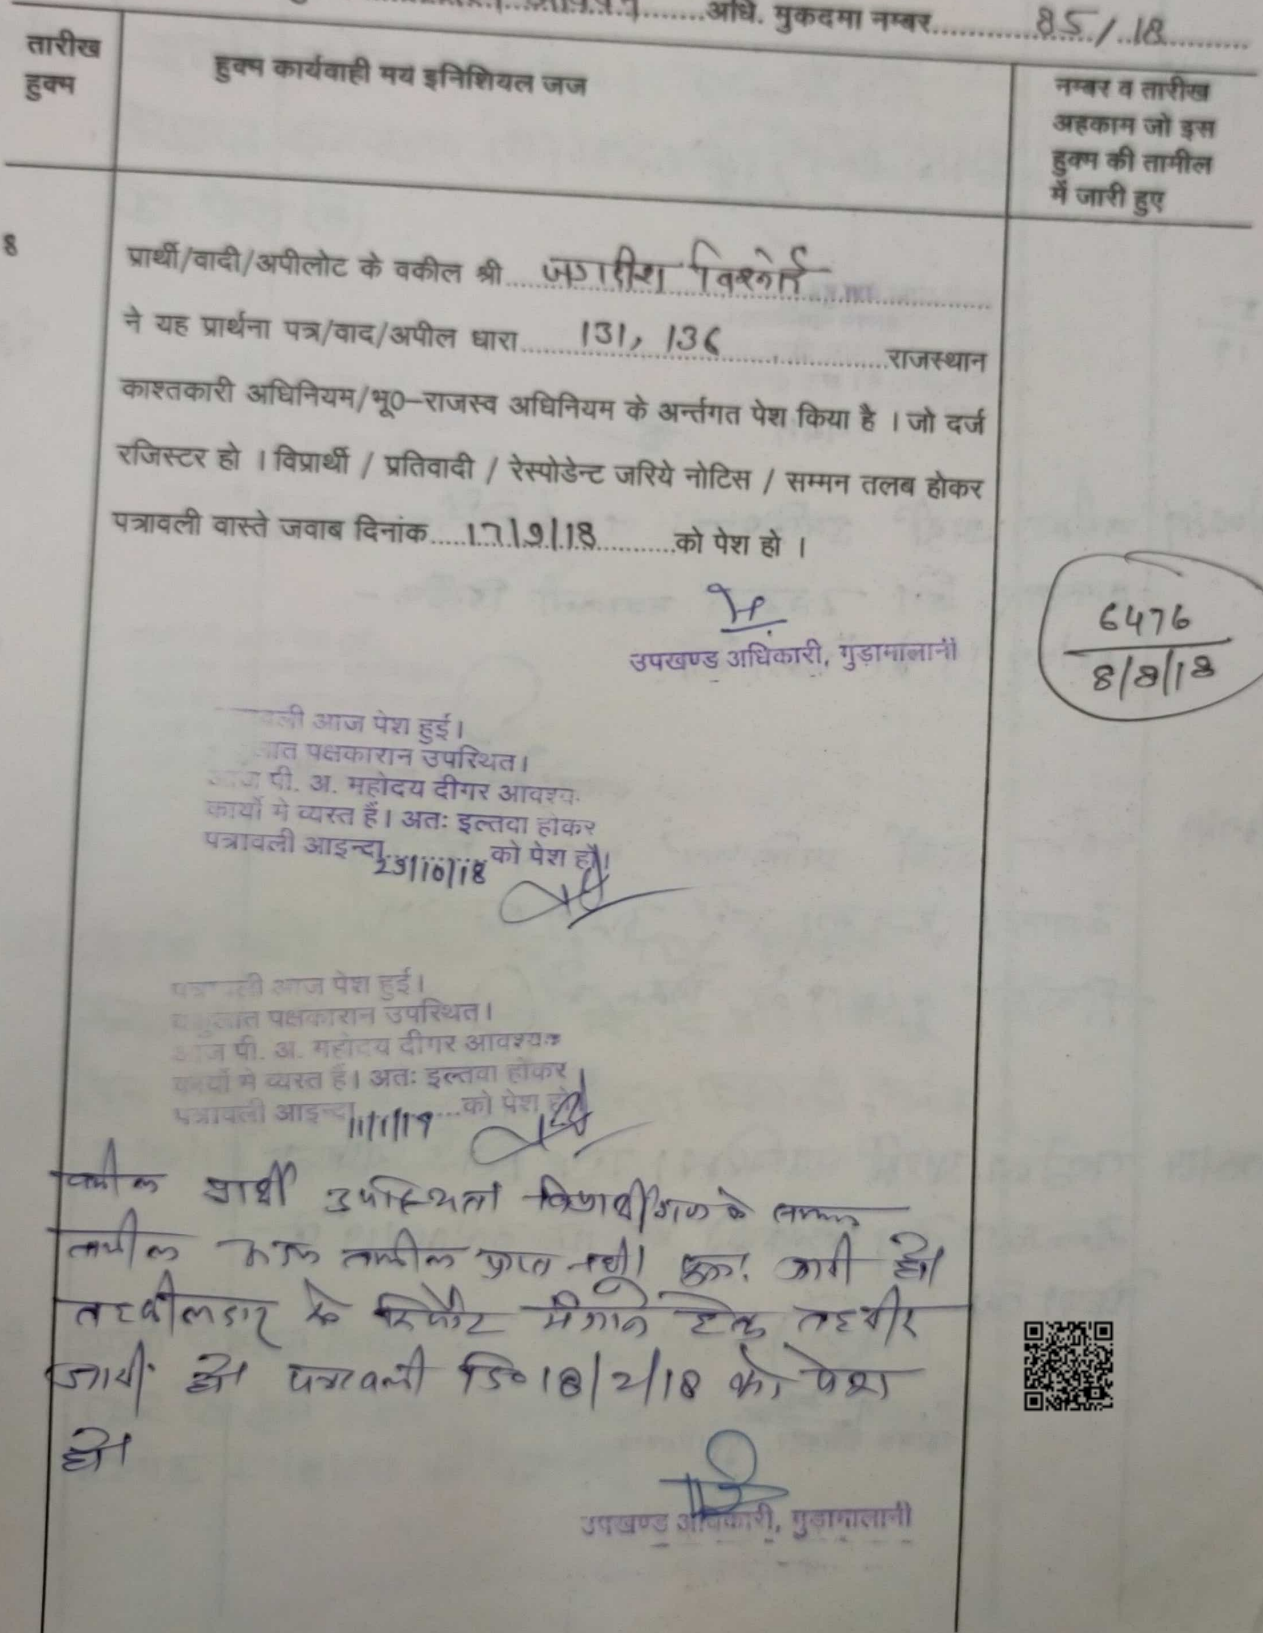 अधि. मुकदमा नम्बर 85/18
तारीख
हुक्म
हुक्म कार्यवाही मय इनिशियल जज
नम्बर व तारीख
अहकाम जो इस
हुक्म की तामील
में जारी हुए
8
प्रार्थी/वादी/अपीलोट के वकील श्री जगदीश विश्नोई
ने यह प्रार्थना पत्र/वाद/अपील धारा 131, 136 राजस्थान
काश्तकारी अधिनियम/भू0-राजस्व अधिनियम के अर्न्तगत पेश किया है । जो दर्ज
रजिस्टर हो । विप्रार्थी / प्रतिवादी / रेस्पोडेन्ट जरिये नोटिस / सम्मन तलब होकर
पत्रावली वास्ते जवाब दिनांक 17/9/18 को पेश हो ।
उपखण्ड अधिकारी, गुड़ामालानी
6476
8/8/18
वली आज पेश हुई।
पक्षकारान उपस्थित।
पी. अ. महोदय दीगर आवश्य
कार्यो मे व्यस्त हैं। अतः इल्तवा होकर
पत्रावली आइन्दा 23/10/18 को पेश हो।
आज पेश हुई।
पक्षकारान उपस्थित।
आज पी. अ. महोदय दीगर आवश्यक
कार्यो मे व्यस्त हैं। अतः इल्तवा होकर
पत्रावली आइन्दा 11/1/19 को पेश हो
वकील प्रार्थी उपस्थित। विप्रार्थीगण के
तामील तामील प्राप्त नही। जारी हो।
तहसीलदार से रिपोर्ट मंगाने हेतु तहरीर
जारी हो। पत्रावली दि० 18/2/18 को पेश
हो।
उपखण्ड अधिकारी, गुड़ामालानी